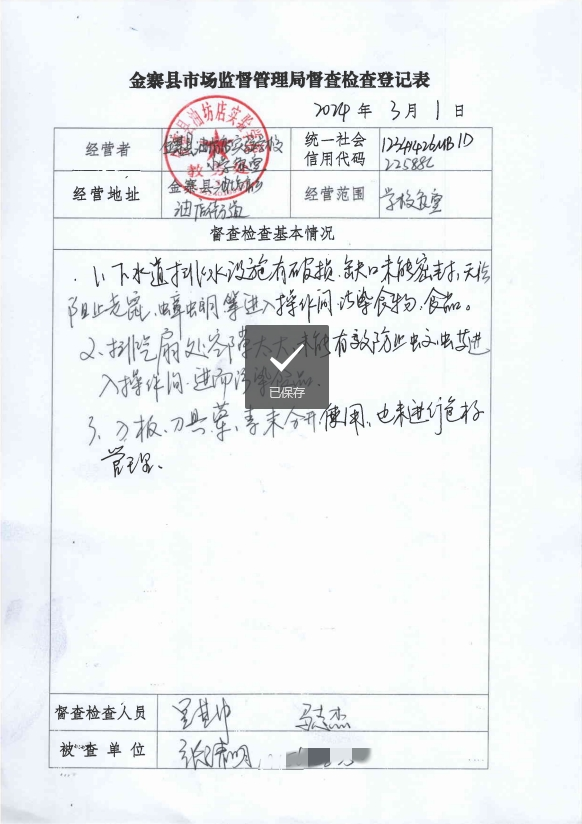 金寨县市场监督管理局督查检查登记表
2024 年 3 月 1 日
经营者
金寨县油坊店实验学校
食堂
统一社会
信用代码
12341426MB1D
经营地址
金寨县油坊店
油店街道
经营范围
学校食堂
督查检查基本情况
1、下水道排水设施有破损、缺口未能密封，无法
阻止老鼠、蟑螂等进入操作间污染食物、食品。
2、排气扇处缝隙太大，未能有效防止蚊虫等进
入操作间，进而污染食品。
3、刀板、刀具荤、素未分开使用，也未进行色标
管理。
已保存
督查检查人员
被查单位